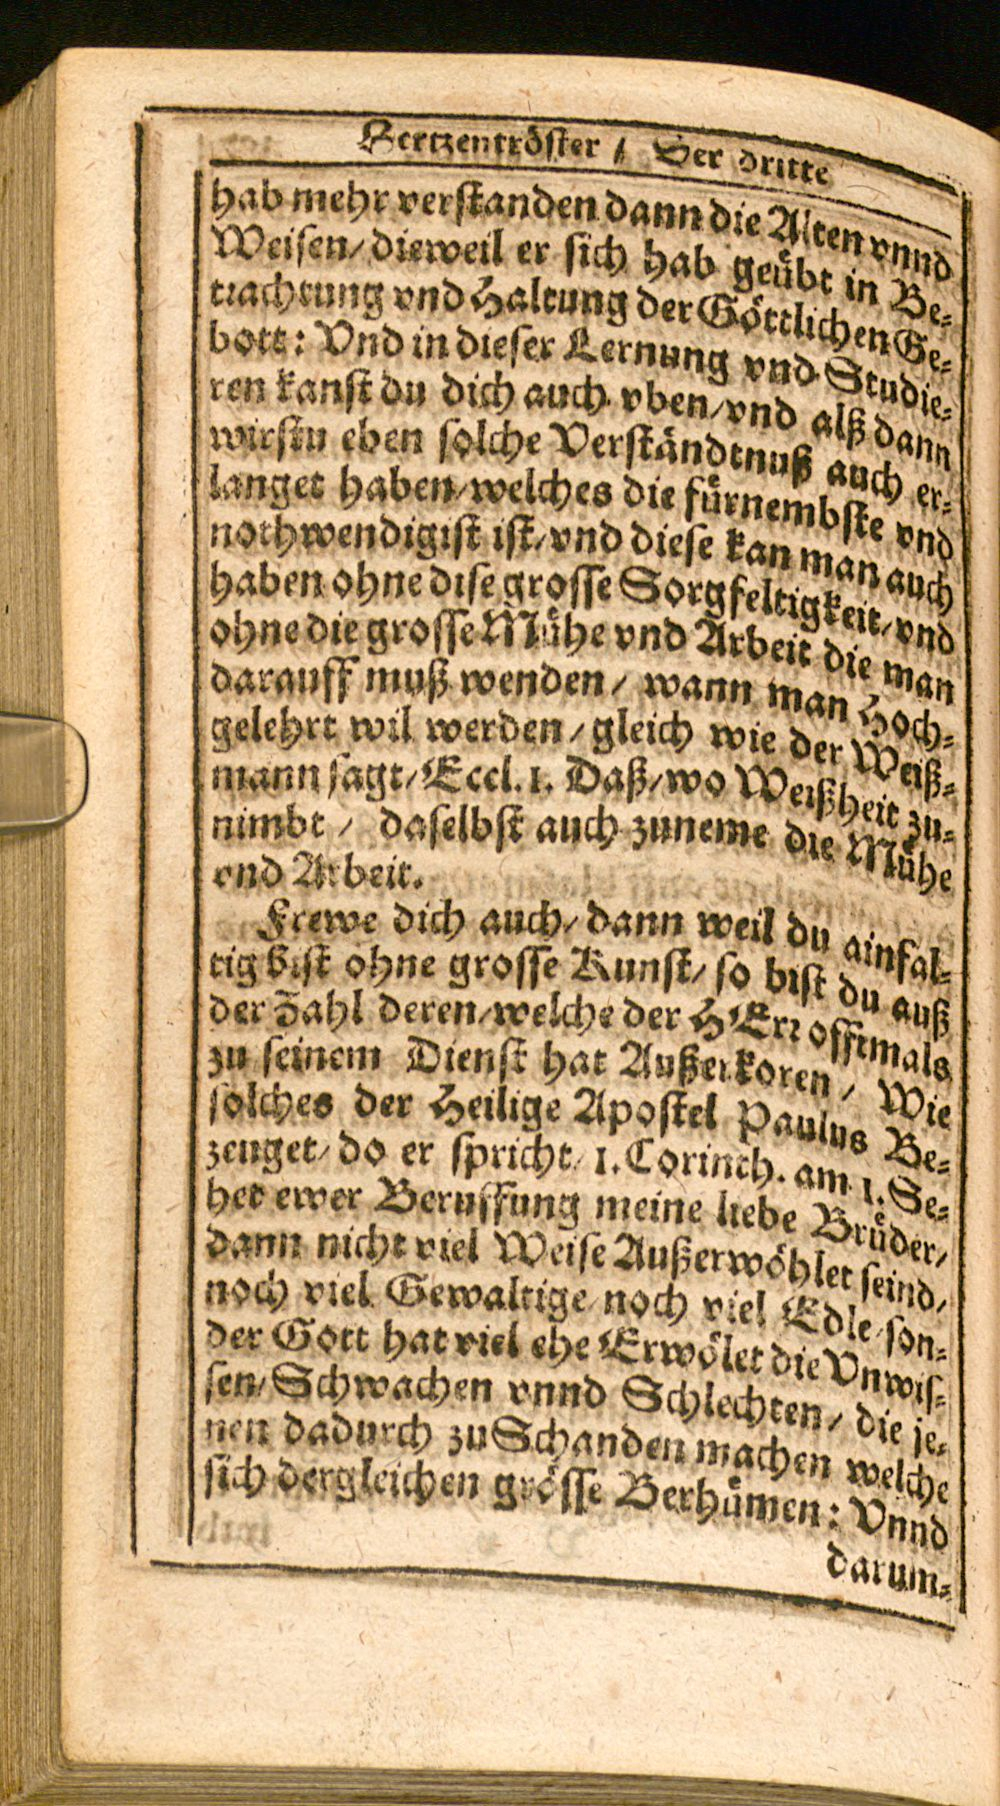 Hertzentröster / Der dritte
hab mehr verstanden dann die Alten vnnd
Weisen/ dieweil er sich hab geübt in Be-
trachtung vnd Haltung der Göttlichen Ge-
bott: Vnd in dieser Lernung vnd Studie-
ren kanst du dich auch vben/ vnd alß dann
wirstu eben solche Verständtnuß auch er-
langet haben/ welches die fürnembste vnd
nothwendigist ist/ vnd diese kan man auch
haben ohne dise grosse Sorgfeltigkeit/ vnd
ohne die grosse Mühe vnd Arbeit die man
darauff muß wenden / wann man Hoch-
gelehrt wil werden / gleich wie der Weiß-
mann sagt/ Eccl. 1. Daß/ wo Weißheit zu-
nimbt / daselbst auch zuneme die Mühe
vnd Arbeit.
Frewe dich auch/ dann weil du ainfal-
tig bist ohne grosse Kunst/ so bist du auß
der Zahl deren/ welche der HErr offtmals
zu seinem Dienst hat Außerkoren / Wie
solches der Heilige Apostel Paulus Be-
zeuget/ do er spricht/ 1. Corinth. am 1. Se-
het ewer Beruffung meine liebe Brüder/
dann nicht viel Weise Außerwöhlet seind/
noch viel Gewaltige/ noch viel Edle/ son-
der Gott hat viel ehe Erwölet die Vnwis-
sen/ Schwachen vnnd Schlechten / die je-
nen dadurch zu Schanden machen welche
sich dergleichen grösse Berhümen: Vnnd
darum-